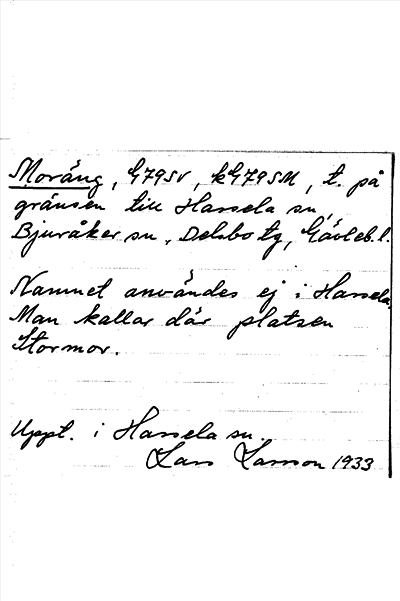 Moräng, G79SV, kG79SM, t. på
gränsen till Hassela sn,
Bjuråker sn, Delsbo tg, Gävleb. l.
Namnet användes ej i Hassela.
Man kallar där platsen
Stormor.
Uppt. i Hassela sn.
Lars Larsson 1933